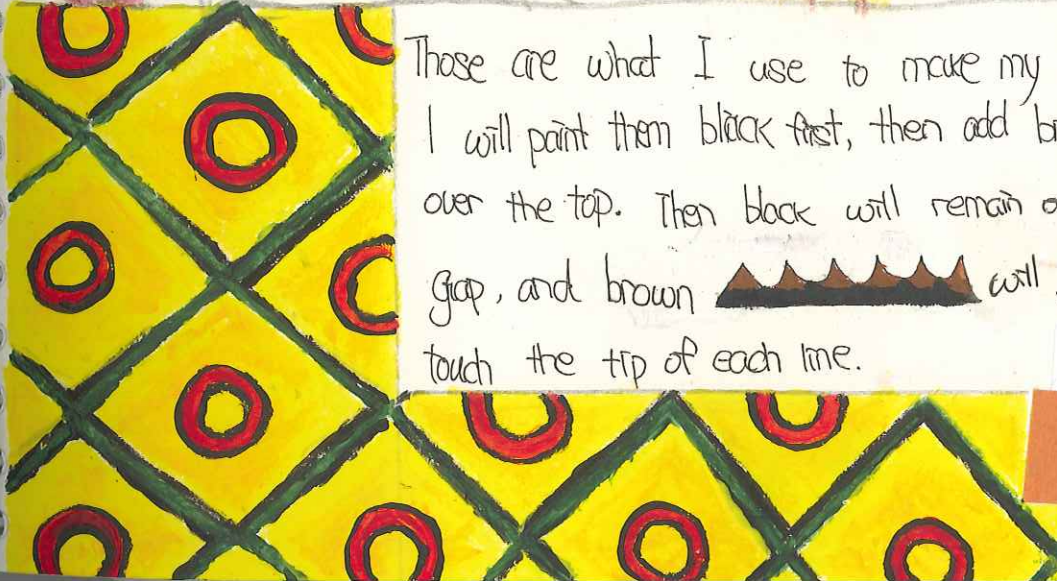 Those are what I use to make my
I will paint them black first, then add
over the top. Then black will remain
gap, and brown will
touch the tip of each line.